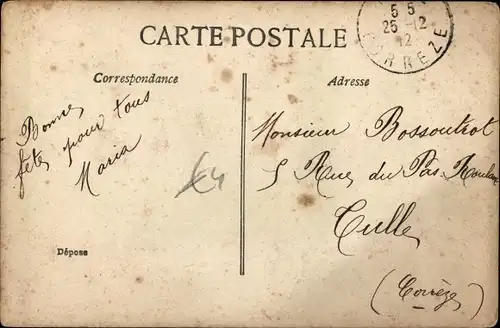 CARTE POSTALE
5 5
25-12
12
CORREZE
Correspondance
Adresse
Bonne
fête pour tous
Maria
£4
Monsieur Bossoutrot
5 Rue du Pas Roulant
Tulle
(Corrèze)
Dépose